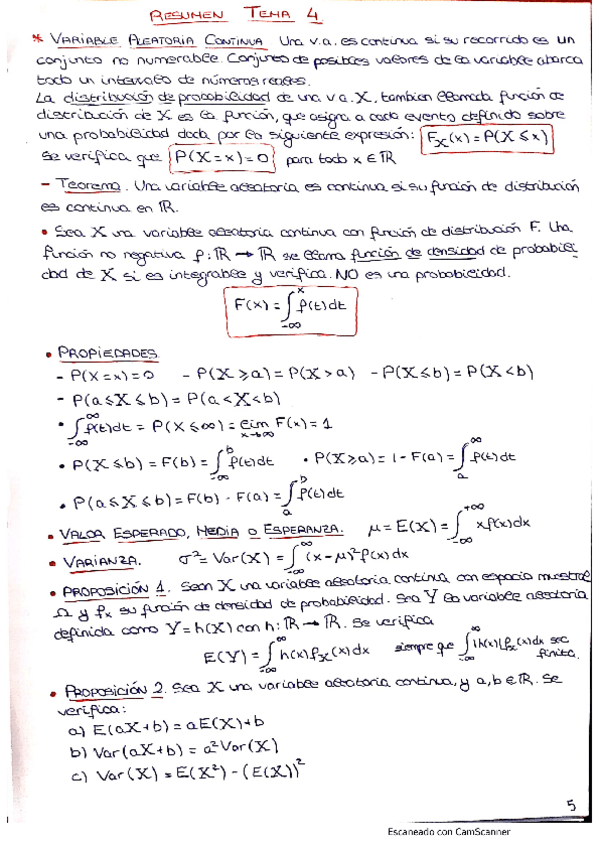 RESUMEN TEMA 4
* VARIABLE ALEATORIA CONTINUA. Una v.a. es continua si su recorrido es un
conjunto no numerable. Conjunto de posibles valores de la variable abarca
todo un intervalo de números reales.
La distribución de probabilidad de una v.a. X, tambien llamada función de
distribución de X es la función, que asigna a cada evento definido sobre
una probabilidad dada por la siguiente expresión: F_X(x) = P(X ≤ x)
Se verifica que P(X=x)=0 para todo x ∈ ℝ
- Teorema. Una variable aleatoria es continua si su función de distribución
es continua en ℝ.
• Sea X una variable aleatoria continua con función de distribución F. Una
función no negativa f: ℝ → ℝ se llama función de densidad de probabili
dad de X si es integrable y verifica. NO es una probabilidad.
F(x) = ∫_{-∞}^{x} f(t)dt
• PROPIEDADES
- P(X=x)=0 - P(X ≥ a) = P(X > a) - P(X ≤ b) = P(X < b)
- P(a ≤ X ≤ b) = P(a < X < b)
• ∫_{-∞}^{∞} f(t)dt = P(X ≤ ∞) = lim_{x→∞} F(x) = 1
• P(X ≤ b) = F(b) = ∫_{-∞}^{b} f(t)dt • P(X ≥ a) = 1 - F(a) = ∫_{a}^{∞} f(t)dt
• P(a ≤ X ≤ b) = F(b) - F(a) = ∫_{a}^{b} f(t)dt
• VALOR ESPERADO, MEDIA O ESPERANZA. μ = E(X) = ∫_{-∞}^{+∞} x f(x)dx
• VARIANZA. σ² = Var(X) = ∫_{-∞}^{∞} (x-μ)² f(x)dx
• PROPOSICIÓN 1. Sean X una variable aleatoria continua con espacio muestral
Ω y f_X su función de densidad de probabilidad. Sea Y la variable aleatoria
definida como Y = h(X) con h: ℝ → ℝ. Se verifica
E(Y) = ∫_{-∞}^{∞} h(x) f_X(x)dx siempre que ∫_{-∞}^{∞} |h(x)| f_X(x)dx sea
finita.
• PROPOSICIÓN 2. Sea X una variable aleatoria continua, y a, b ∈ ℝ. Se
verifica:
a) E(aX+b) = aE(X)+b
b) Var(aX+b) = a² Var(X)
c) Var(X) = E(X²) - (E(X))²
5
Escaneado con CamScanner